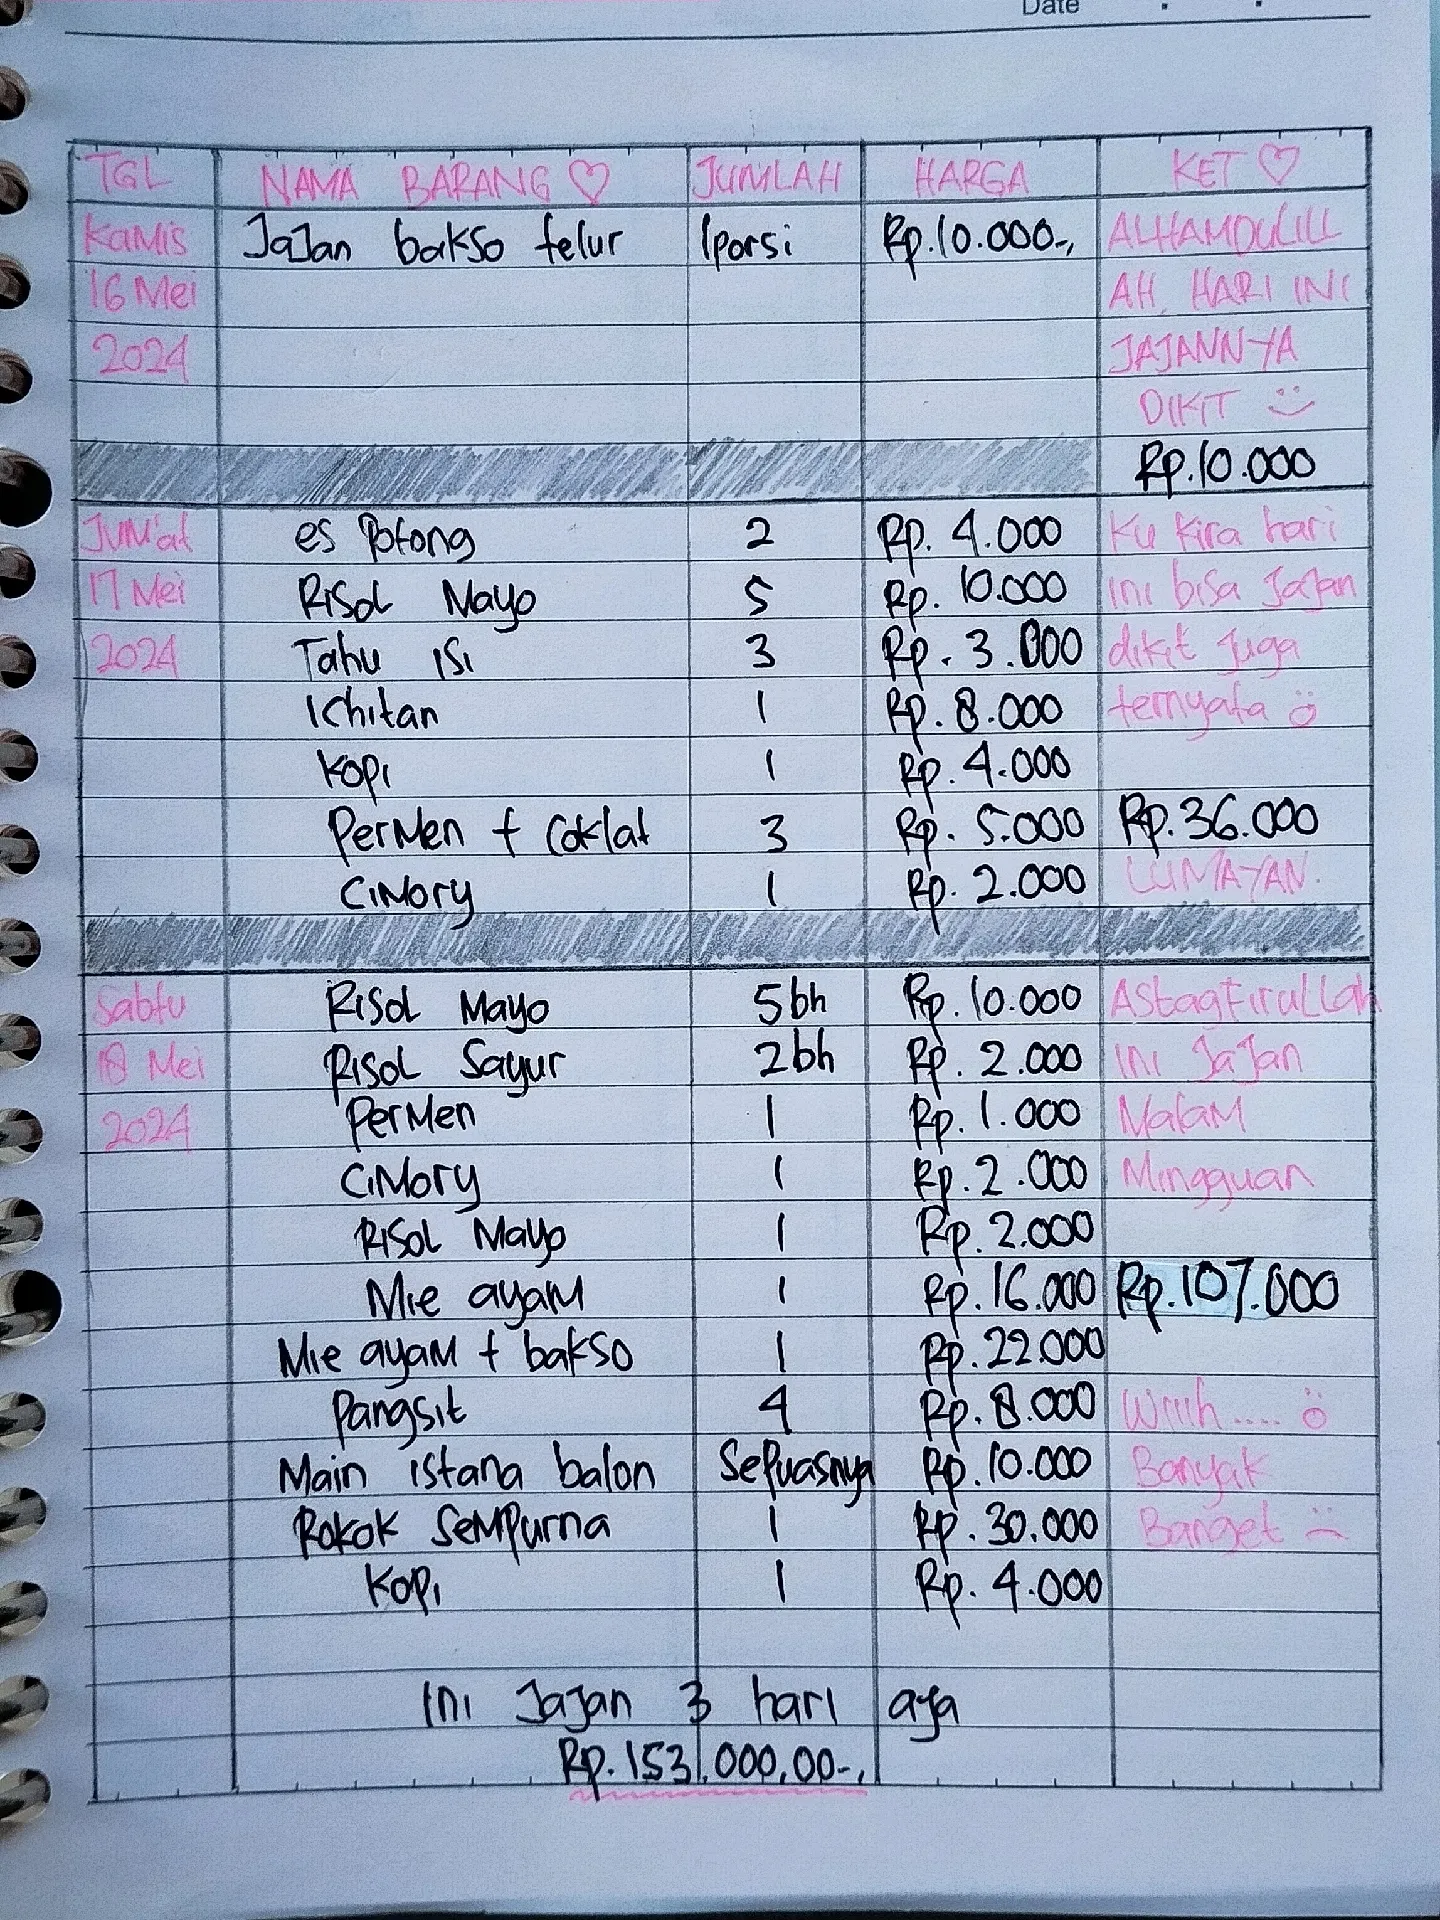 Date . .
TGL NAMA BARANG ♡ JUMLAH HARGA KET ♡
KaMis JaJan bakso telur 1porsi Rp.10.000-, ALHAMDULILL
16 Mei AH HARI INI
2024 JAJANNYA
DIKIT
Rp.10.000
JUM'at es Potong 2 Rp. 4.000 Ku kira hari
17 Mei RisoL Mayo 5 Rp. 10.000 ini bisa JaJan
2024 Tahu isi 3 Rp. 3.000 dikit juga
Ichitan 1 Rp. 8.000 ternyata
Kopi 1 Rp. 4.000
PerMen + Coklat 3 Rp. 5.000 Rp.36.000
CiMory 1 Rp. 2.000 LUMAYAN.
Sabtu RisoL Mayo 5 bh Rp. 10.000 AStagFiruLLah
18 Mei RisoL Sayur 2 bh Rp. 2.000 ini JaJan
2024 PerMen 1 Rp. 1.000 MalaM
CiMory 1 Rp. 2.000 Mingguan
RisoL Mayo 1 Rp. 2.000
Mie ayaM 1 Rp. 16.000 Rp.107.000
Mie ayaM + bakso 1 Rp. 22.000
Pangsit 4 Rp. 8.000
Main istana balon SePuasnya Rp. 10.000 Banyak
Rokok SeMPurna 1 Rp. 30.000 Banget
Kopi 1 Rp. 4.000
Ini JaJan 3 hari aja
Rp. 153.000,00-,